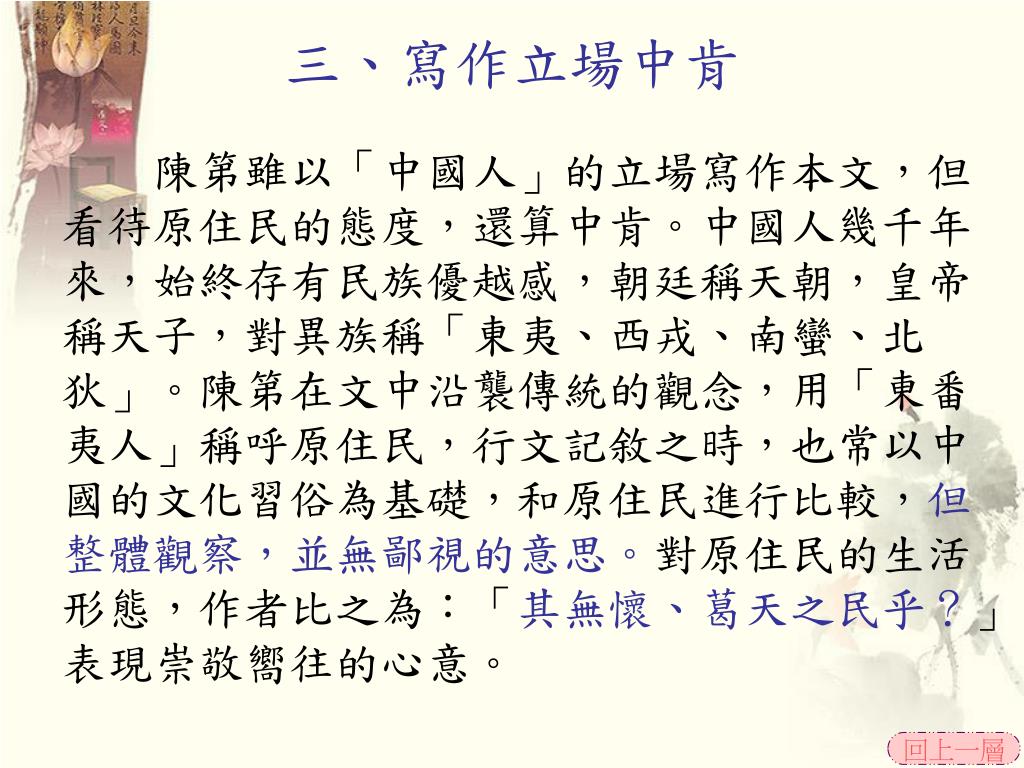 三、寫作立場中肯
陳第雖以「中國人」的立場寫作本文，但
看待原住民的態度，還算中肯。中國人幾千年
來，始終存有民族優越感，朝廷稱天朝，皇帝
稱天子，對異族稱「東夷、西戎、南蠻、北
狄」。陳第在文中沿襲傳統的觀念，用「東番
夷人」稱呼原住民，行文記敘之時，也常以中
國的文化習俗為基礎，和原住民進行比較，但
整體觀察，並無鄙視的意思。對原住民的生活
形態，作者比之為：「其無懷、葛天之民乎？」
表現崇敬嚮往的心意。
回上一層